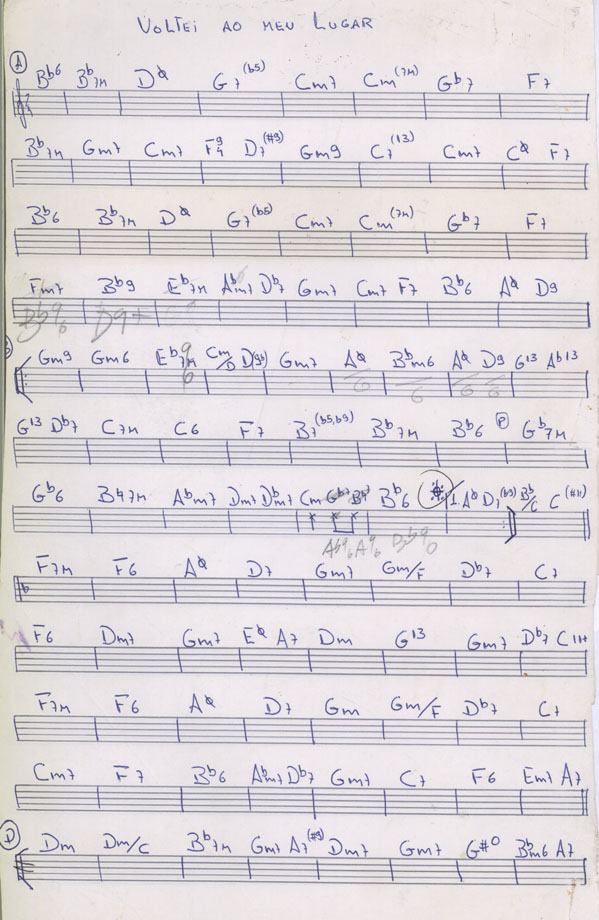 VOLTEI AO MEU LUGAR
A
Bb6 Bb7M Dø G7(b5) Cm7 Cm(7M) Gb7 F7
Bb7M Gm7 Cm7 F94 D7(#9) Gm9 C7(13) Cm7 Cø F7
Bb6 Bb7M Dø G7(b5) Cm7 Cm(7M) Gb7 F7
Fm7 Bb9 Eb7M Abm7 Db7 Gm7 Cm7 F7 Bb6 Aø D9
Bb96 D9+
Gm9 Gm6 Eb7M Cm/D D(9b) Gm7 Aø Bbm6 Aø D9 G13 Ab13
G13 Db7 C7M C6 F7 B7(b5,b9) Bb7M Bb6 P Gb7M
Gb6 B47M Abm7 Dm7 Dbm7 Cm Bb6 1. Aø D7(b9) Bb/C C(#11)
Ab96 A96
F7M F6 Aø D7 Gm7 Gm/F Db7 C7
F6 Dm7 Gm7 Eø A7 Dm G13 Gm7 Db7 C11+
F7M F6 Aø D7 Gm Gm/F Db7 C7
Cm7 F7 Bb6 Abm7 Db7 Gm7 C7 F6 Em7 A7
D
Dm Dm/C Bb7M Gm7 A7(#9) Dm7 Gm7 G#o Bbm6 A7